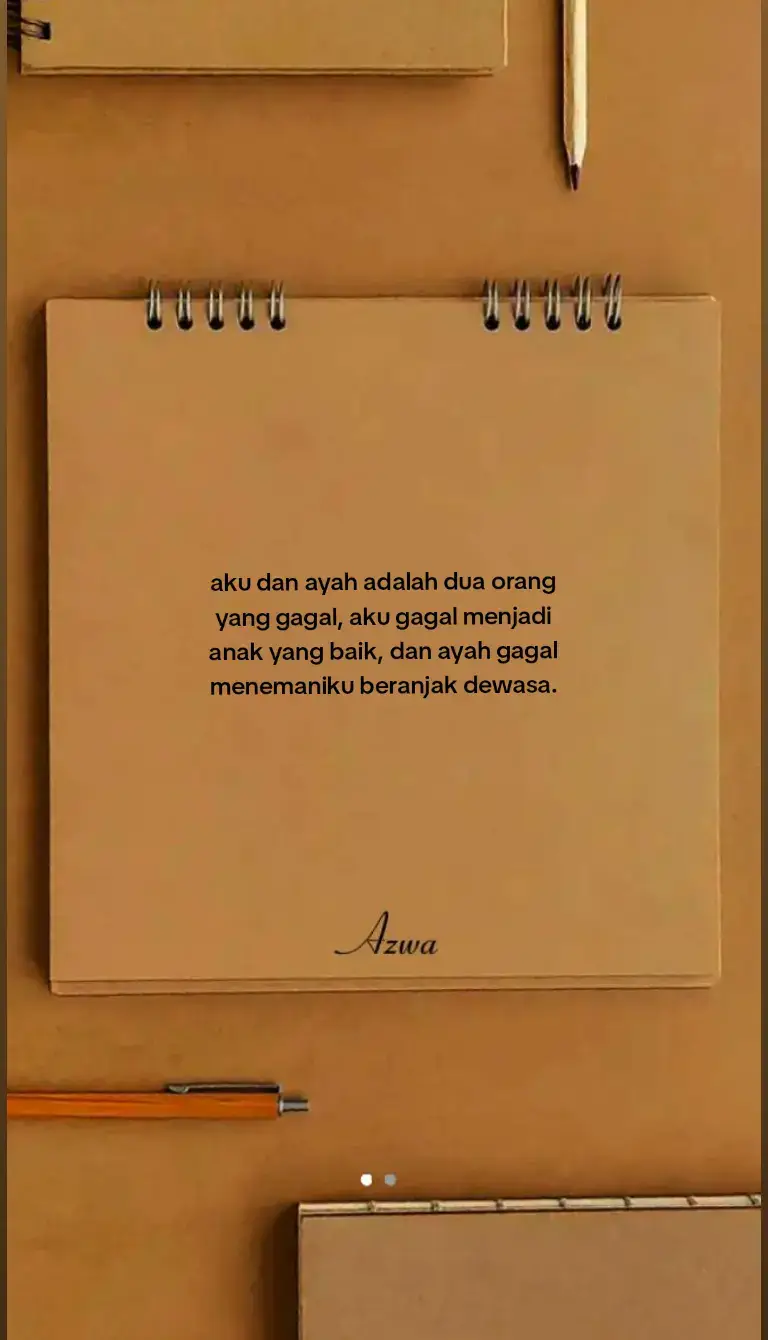 aku dan ayah adalah dua orang
yang gagal, aku gagal menjadi
anak yang baik, dan ayah gagal
menemaniku beranjak dewasa.
Azwa